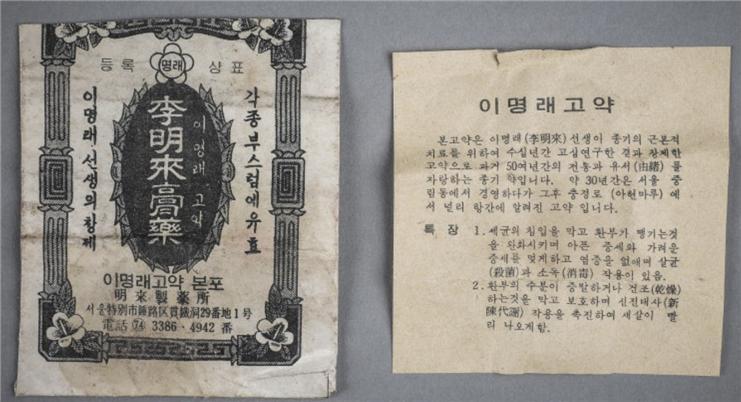 등록 명래 상표
이명래 선생의 창제
李明來高藥
이명래 고약
각종부스럼에유효
이명래고약 본포
明來製藥所
서울特別市鍾路区貫鐵洞29番地1号
電話 74 3386·4942 番
이명래고약
본고약은 이명래(李明來) 선생이 종기의 근본적
치료를 위하여 수십년간 고심연구한 결과 창제한
고약으로 과거 50여년간의 전통과 유서(由緖)를
자랑하는 종기 약입니다. 약 30년간은 서울 중
림동에서 경영하다가 그후 충정로 (아현마루)에
서 널리 항간에 알려진 고약 입니다.
특 장 1. 세균의 침입을 막고 환부가 땡기는것
을 완화시키며 아픈 증세와 가려운
증세를 멎게하고 염증을 없애며 살균
(殺菌)과 소독(消毒) 작용이 있음.
2. 환부의 수분이 증발하거나 건조(乾燥)
하는것을 막고 보호하며 신진대사(新
陳代謝) 작용을 촉진하여 새살이 빨
리 나오게함.